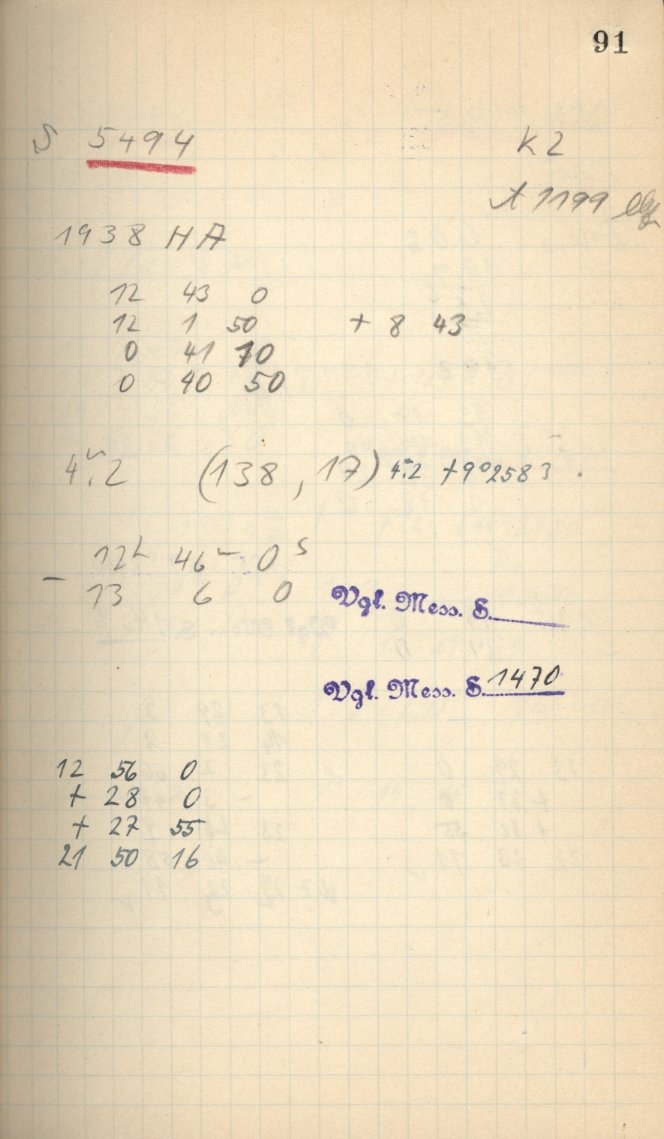 91
S 5494 K2
A 1199
1938 HA
12 43 0
12 1 50 + 8 43
0 41 10
0 40 50
4ᵐ.2 (138, 17) 4ᵐ.2 +9°2583.
12ʰ 46ᵐ 0ˢ
– 13 6 0
Vgl. Mess. S.
Vgl. Mess. S. 1470
12 56 0
+ 28 0
+ 27 55
21 50 16